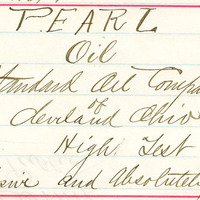 PEARL
Oil
Standard Oil Compa
of
leveland Ohio
High Test
sive and Absolutel